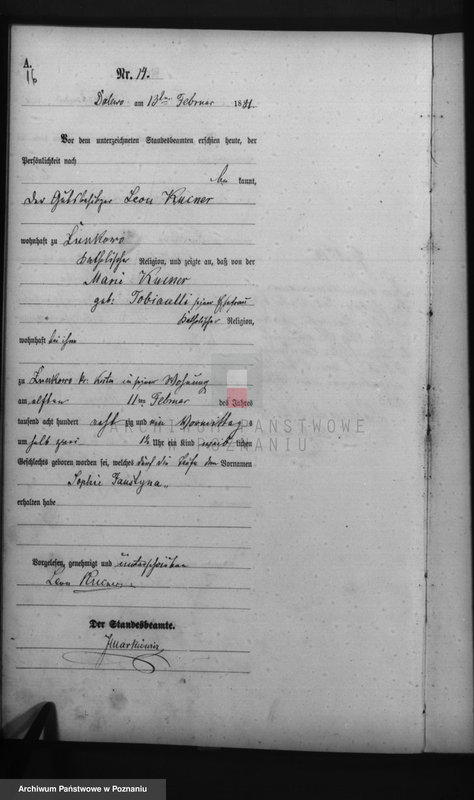 A.
16
Nr. 14.
Dolewo am 13ten Februar 1881.
Vor dem unterzeichneten Standesbeamten erschien heute, der
Persönlichkeit nach
kannt,
der Gutsbesitzer Leon Kucner
wohnhaft zu Lunkowo
katholischer Religion, und zeigte an, daß von der
Marie Kucner
geb: seiner Ehefrau
katholischer Religion,
wohnhaft bei ihm
zu Lunkowo in seiner Wohnung
am elften 11ten Februar des Jahres
tausend acht hundert acht zig und ein Vormittags
um halb zwei 1½ Uhr ein Kind weib lichen
Geschlechts geboren worden sei, welches durch die Taufe den Vornamen
Sophie Faustyna
erhalten habe
Vorgelesen, genehmigt und unterschrieben
Leon Kucner
Der Standesbeamte.
ARCHIWUM PAŃSTWOWE
W POZNANIU
Archiwum Państwowe w Poznaniu